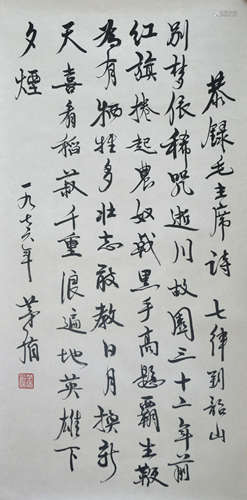 恭録毛主席詩 七律到韶山
别梦依稀咒逝川故園三十二年前
红旗捲起農奴戟黑手高懸霸主鞭
為有牺牲多壮志敢教日月換新
天喜看稻菽千重浪遍地英雄下
夕煙
一九七六年 茅盾